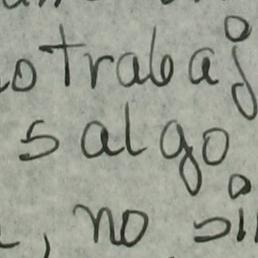 o trabaj
salgo
, no si